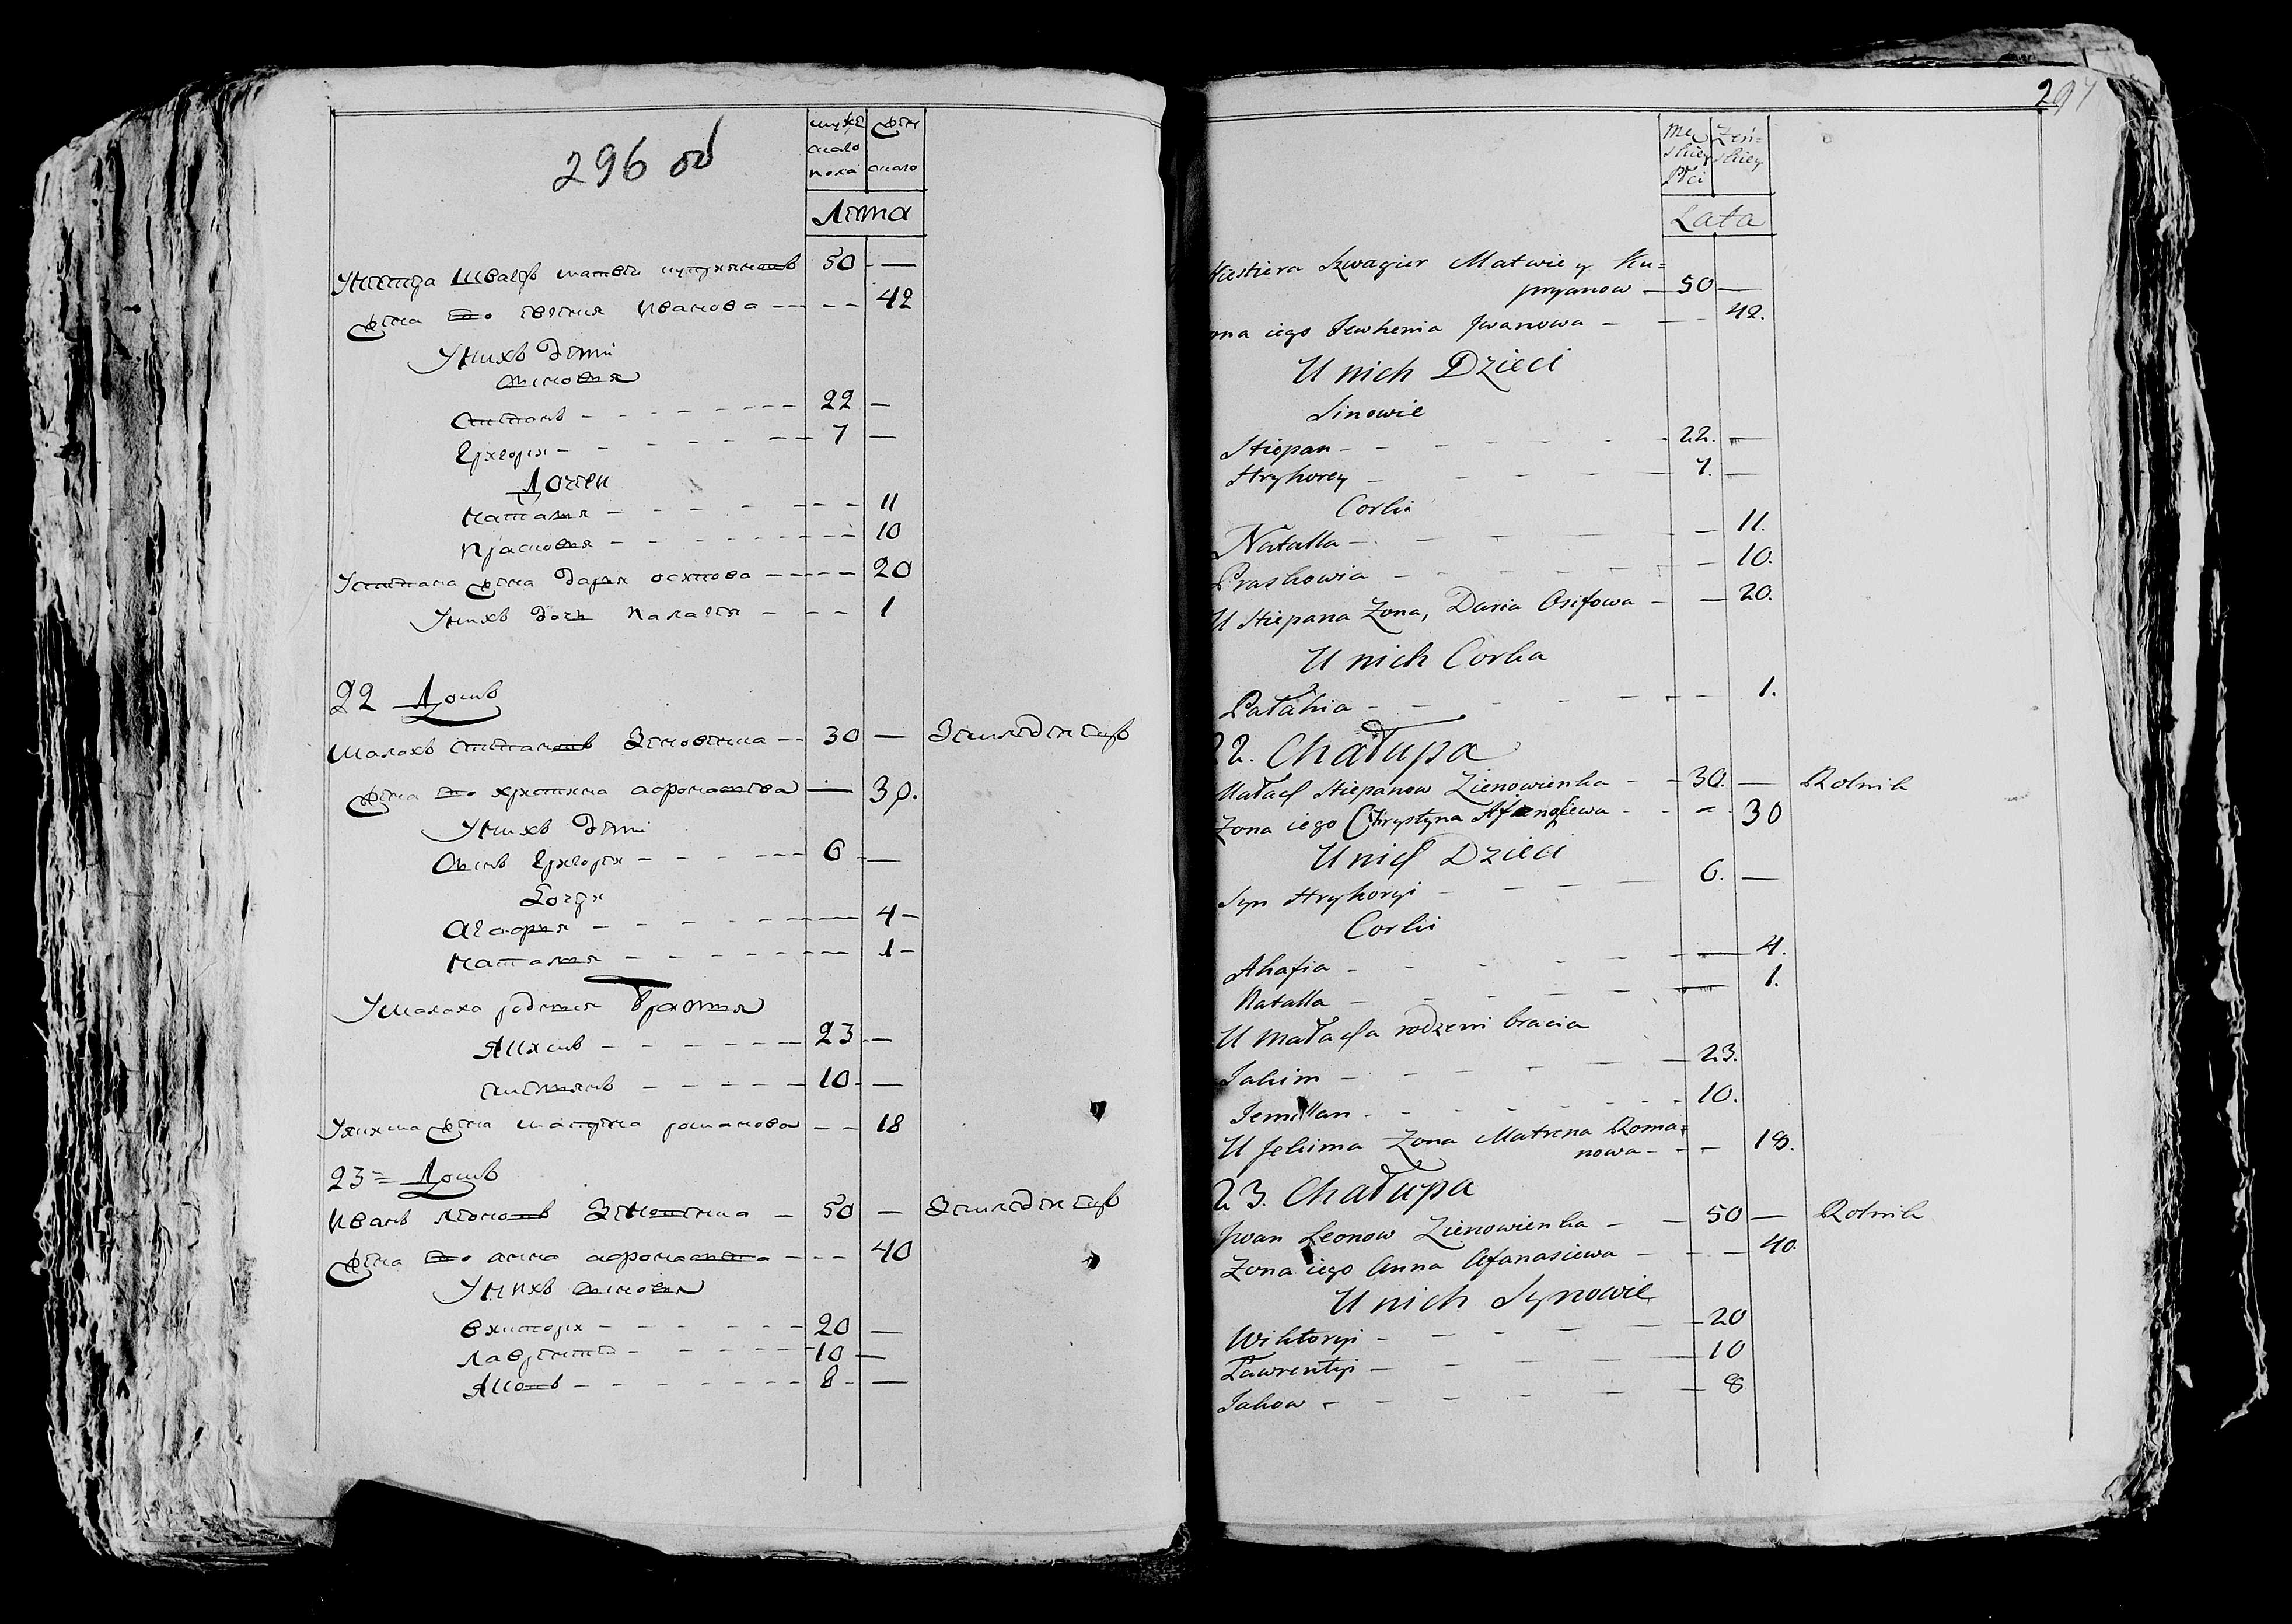 296 об
мужеска пола
женска
Лѣта
Унестера швагер матвей купрянов 50 —
жена его евгения Иванова — 42
У них дети
Сыновя
Степанъ 22 —
Григорий 7 —
Дочки
Наталия — 11
Прасковия — 10
У степана жена дария осипова — 20
У них дочь Палагея — 1
22 Домъ
Малахъ степановъ Зеновенка 30 — Земледелецъ
жена его христина афонасиева — 30.
У них дети
Сынъ Григорий 6 —
Дочери
Агафия — 4 —
Наталия — 1 —
У малаха родные братия
Якимъ 23 —
емелянъ 10 —
У якима жена матрена романова — 18
23 Домъ
Иванъ леоновъ Зеновенка 50 — Земледелецъ
жена его анна афонасиева — 40
У них сыновя
викторий 20 —
лаврентей 10 —
Яковъ 8 —
297
Męskiey Płci
Żeńskiey
Lata
Niestiera Szwagier Matwiey Ku=
pryanow — 50 —
ona iego Jewhenia Jwanowa — 42.
U nich Dzieci
Sinowie
Stiepan 22. —
Hryhorey 7. —
Corki
Natalla — 11.
Praskowia — 10.
U Stiepana Zona, Daria Osifowa — 20.
U nich Corka
Pałahia — 1.
22. Chałupa
Małach Stiepanow Zienowienka 30. — Rolnik
Zona iego Chrystyna Afanasiewa — 30
U nich Dzieci
Syn Hryhoryi 6. —
Corki
Ahafia — 4.
Natalla — 1.
U Małacha rodzeni bracia
Jakim — 23.
Jemillan 10.
U Jekima Zona Matrena Roma=
nowa — 18.
23. Chałupa
Jwan Leonow Zienowienka — 50 — Rolnik
Zona iego Anna Afanasiewa — 40.
U nich Synowie
Wiktoryi — 20
Ławrentyi — 10
Jakow — 8